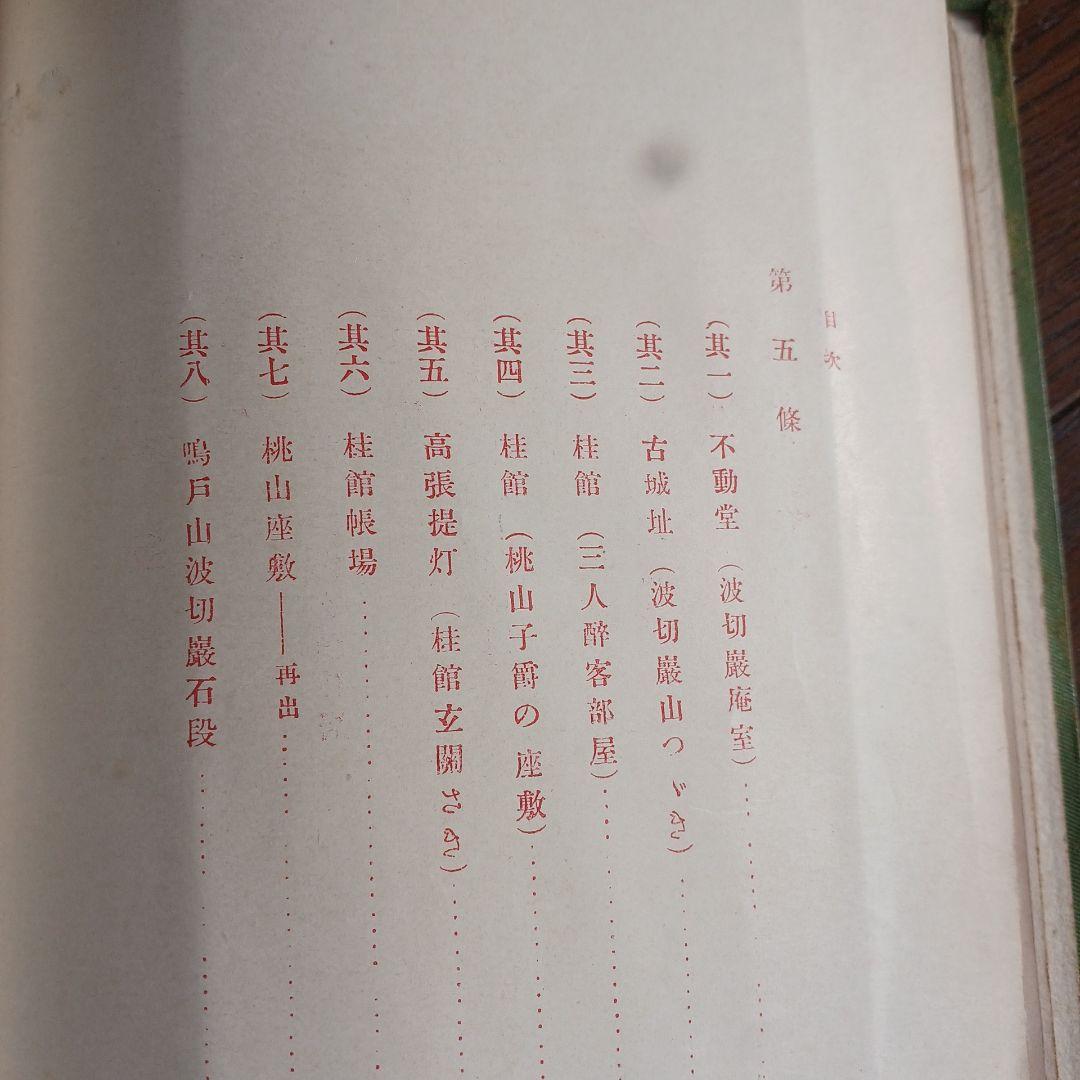 目次
第五條
(其一) 不動堂 (波切巖庵室)
(其二) 古城址 (波切巖山つゞき)
(其三) 桂館 (三人醉客部屋)
(其四) 桂館 (桃山子爵の座敷)
(其五) 高張提灯 (桂館玄關さき)
(其六) 桂館帳場
(其七) 桃山座敷——再出
(其八) 鳴戸山波切巖石段